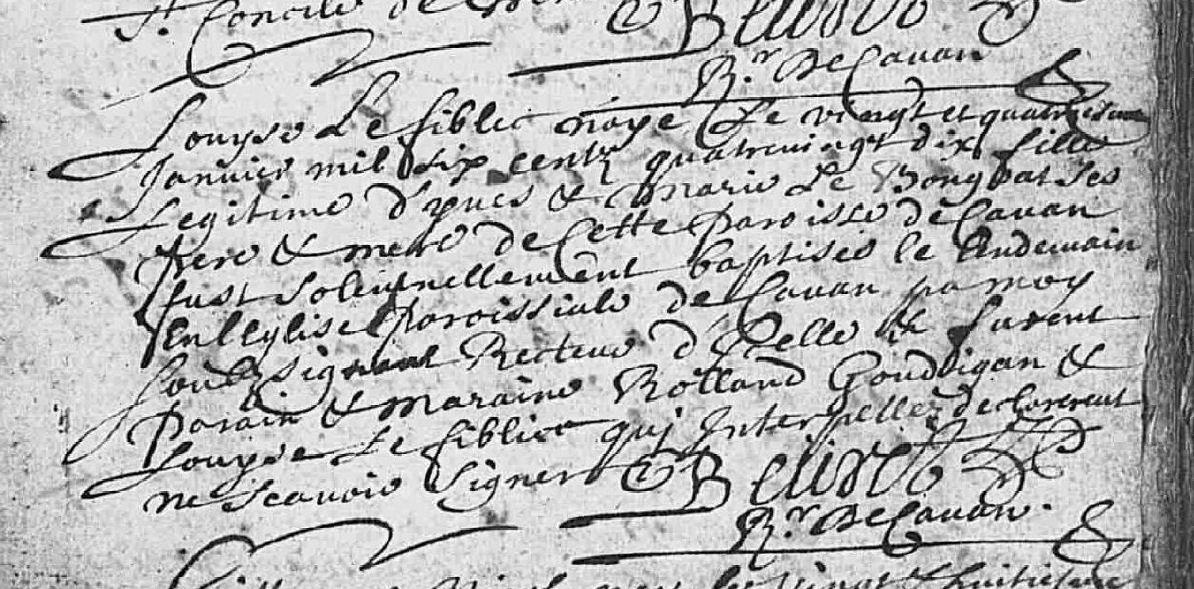 St Concile de
R.r De Cavan
Louyse Le Siblec naye Le vingt et quatriesme
Janvier mil six centz quatrevingt dix fille
Legitime d'yves & marie Le Bongoat ses
pere & mere de Cette paroisse de Cavan
fust solemnellement baptisee le lendemain
En l'eglise paroissiale de Cavan par moy
soubzsignant Recteur d'Icelle & furent
parain & maraine Rolland Goudrigan &
Louyse Le Siblec quj Interpellez declarerent
ne scavoir signer
R.r De Cavan.
vingt & huitiesme